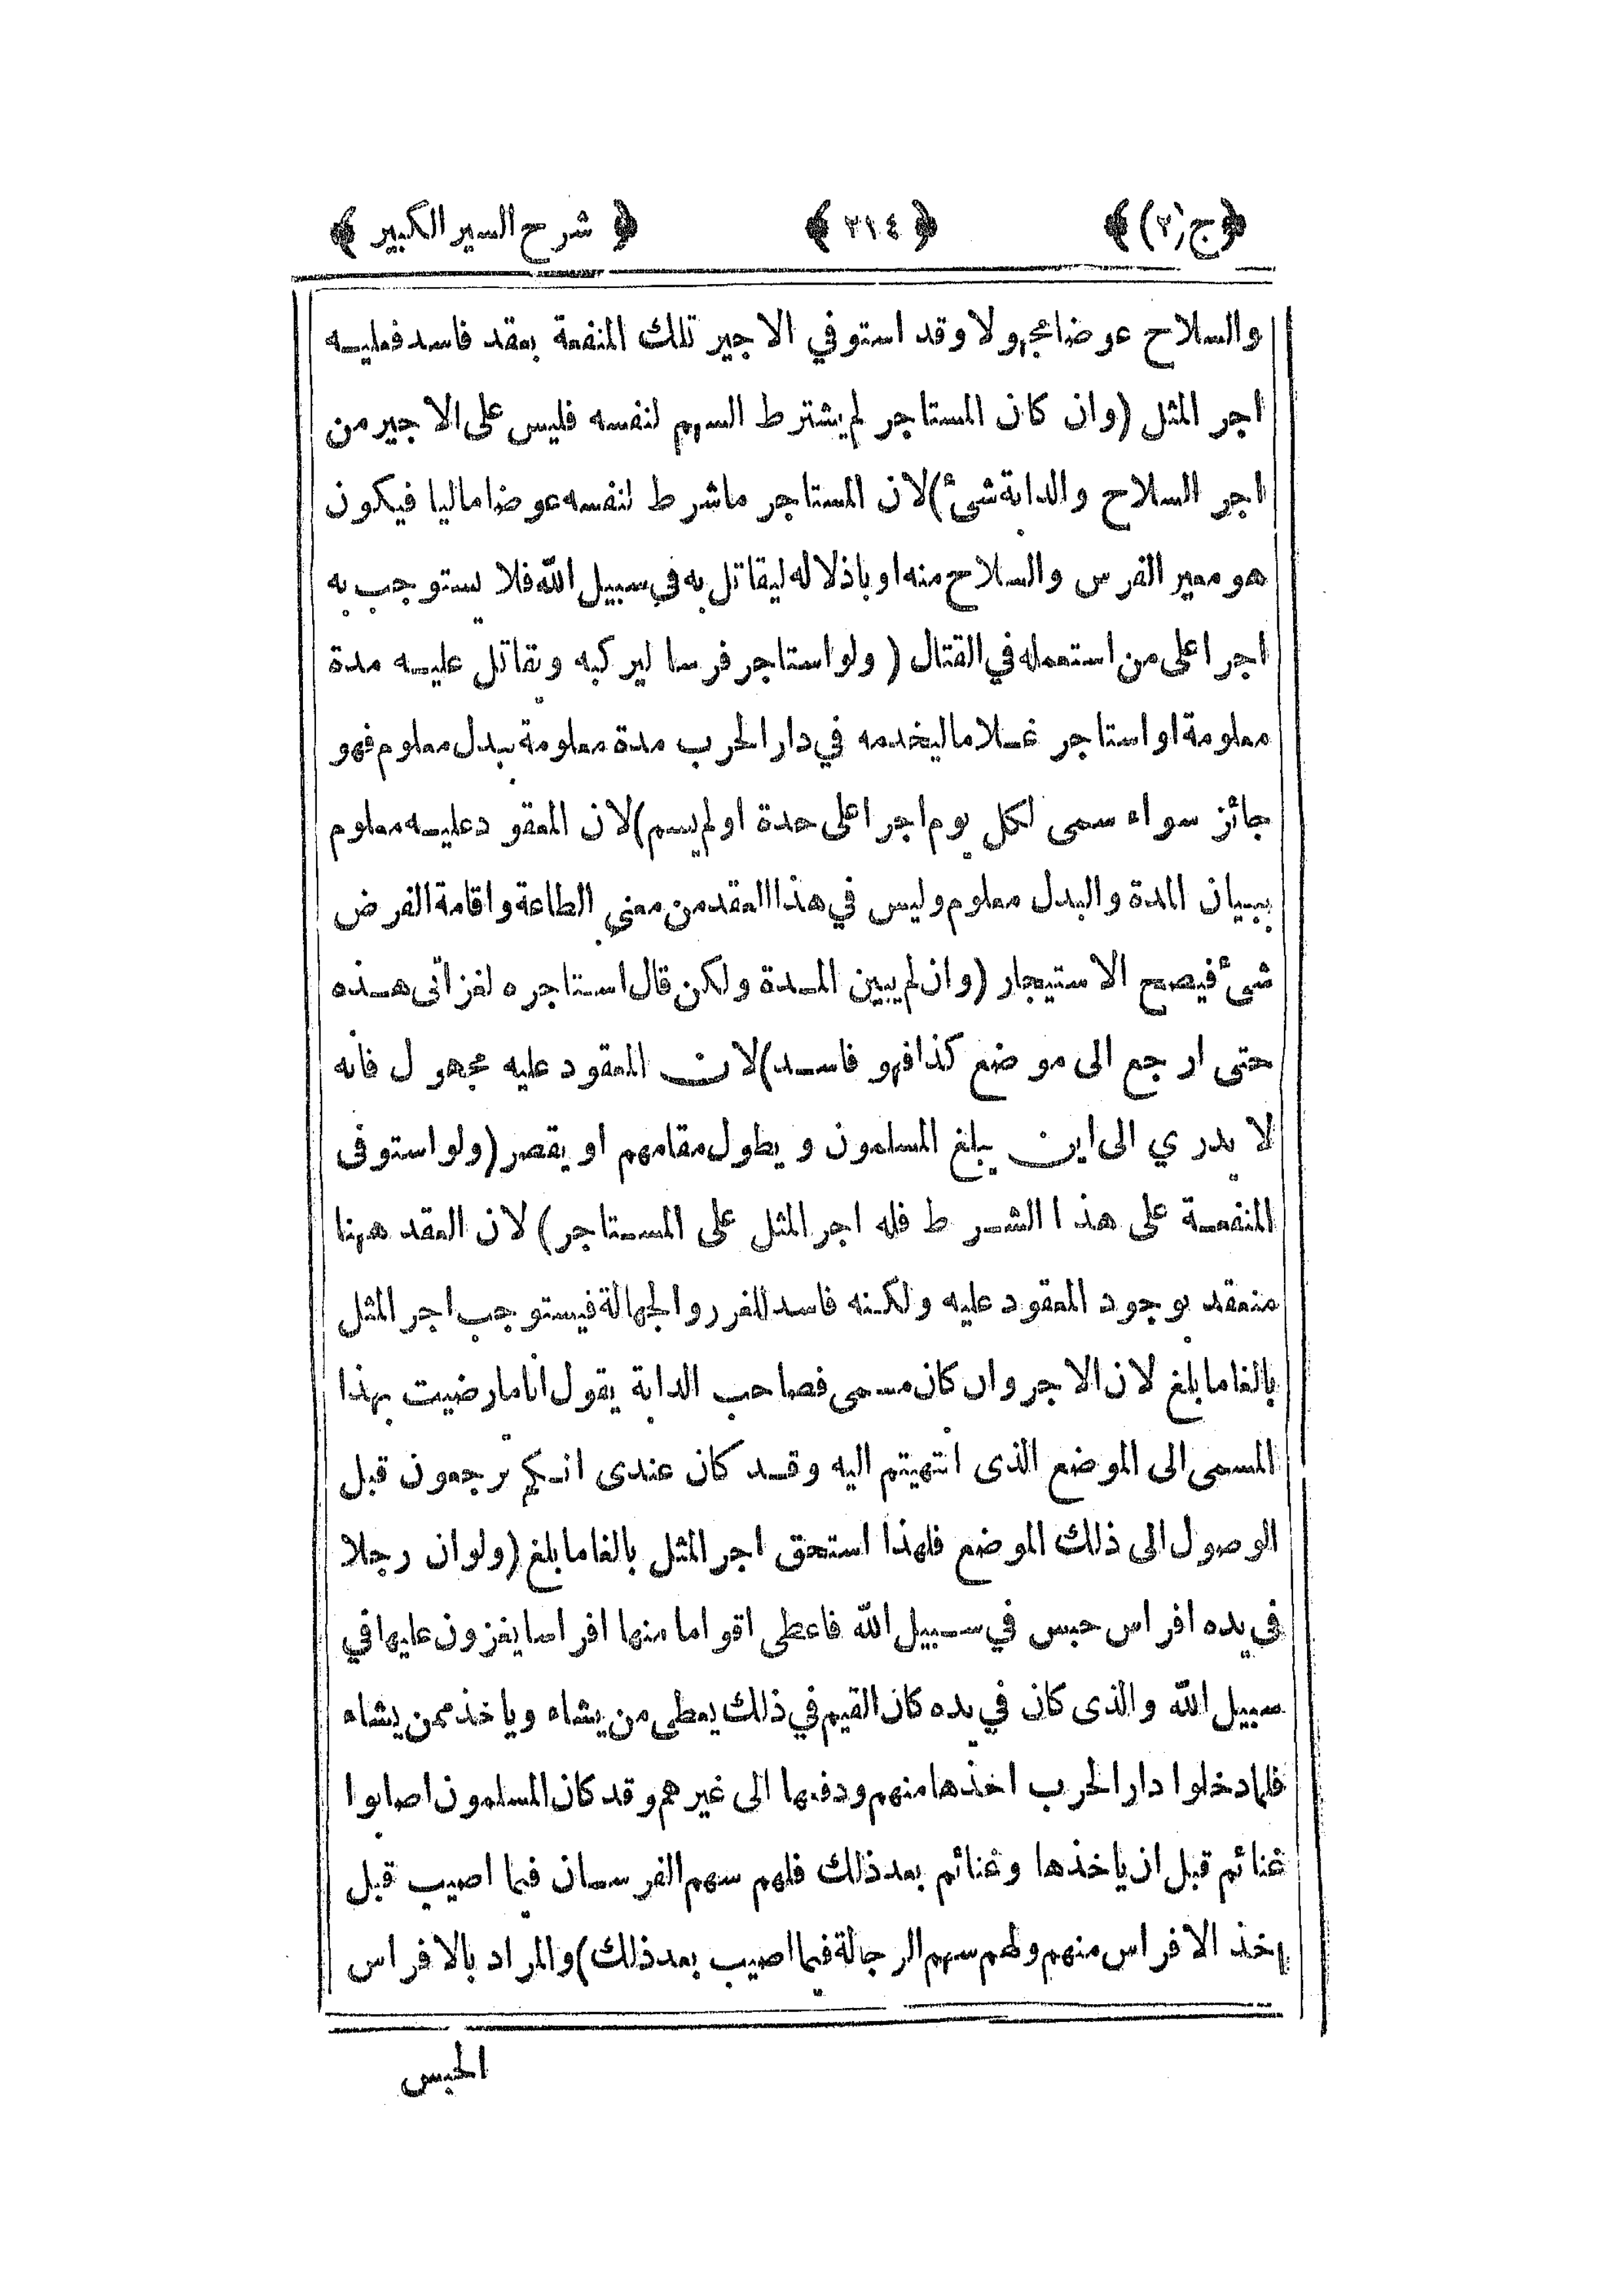 ﴿ج (٢)﴾ ﴿٢١٤﴾ ﴿شرح السير الكبير﴾
والسلاح عوضا مجهولا وقد استوفي الاجير تلك المنفعة بعقد فاسد فعليه
اجر المثل (وان كان المستاجر لم يشترط السهم لنفسه فليس على الاجير من
اجر السلاح والدابة شئ) لان المستاجر ما شرط لنفسه عوضا ماليا فيكون
هو معير الفرس والسلاح منه او باذلا له ليقاتل به في سبيل الله فلا يستوجب به
اجرا على من استعمله في القتال (ولو استاجر فرسا ليركبه ويقاتل عليه مدة
معلومة او استاجر غلاما ليخدمه في دار الحرب مدة معلومة ببدل معلوم فهو
جائز سواء سمى لكل يوم اجرا على حدة او لم يسم) لان المعقود عليه معلوم
ببيان المدة والبدل معلوم وليس في هذا العقد من معنى الطاعة واقامة الفرض
شئ فيصح الاستيجار (وان لم يبين المدة ولكن قال استاجره لغزاتى هذه
حتى ارجع الى موضع كذا فهو فاسد) لان المعقود عليه مجهول فانه
لا يدري الى اين يبلغ المسلمون ويطول مقامهم او يقصر (ولو استوفى
المنفعة على هذا الشرط فله اجر المثل على المستاجر) لان العقد ههنا
منعقد بوجود المعقود عليه ولكنه فاسد للغرر والجهالة فيستوجب اجر المثل
بالغا ما بلغ لان الاجر وان كان مسمى فصاحب الدابة يقول انا ما رضيت بهذا
المسمى الى الموضع الذى انتهيتم اليه وقد كان عندى انكم ترجعون قبل
الوصول الى ذلك الموضع فلهذا استحق اجر المثل بالغا ما بلغ (ولو ان رجلا
فى يده افراس حبس في سبيل الله فاعطى اقواما منها افراسا يغزون عليها في
سبيل الله والذى كان في يده كان القيم في ذلك يعطى من يشاء وياخذ ممن يشاء
فلما دخلوا دار الحرب اخذها منهم ودفعها الى غيرهم وقد كان المسلمون اصابوا
غنائم قبل ان ياخذها وغنائم بعد ذلك فلهم سهم الفرسان فيما اصيب قبل
اخذ الافراس منهم ولهم سهم الرجالة فيما اصيب بعد ذلك) والمراد بالافراس
الحبس